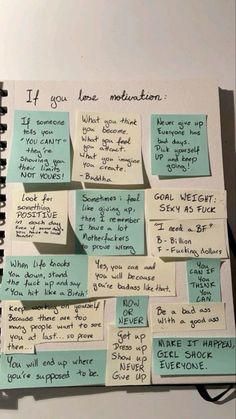 If you lose motivation:
If someone
tells you
"YOU CAN'T"
they're
showing you
their limits
NOT YOURS!
What you think
you become.
What you feel
you attract.
What you imagine
you create.
- Buddha
Never give up
Everyone has
bad days.
Pick yourself
UP and keep
going!
Look for
something
POSITIVE
in each day
Even if some days
you have to look
harder
Sometimes i feel
like giving up,
then I remember
I have a lot
Motherfuckers
to prove wrong
GOAL WEIGHT:
SEXY AS FUCK
"I need a BF"
B - Billion
F - Fucking dollars
When life knocks
you down, stand
the fuck up and say
"You hit like a Bitch!"
Yes, you can and
you will because
you're badass like that.
YOU CAN
IF YOU
THINK
YOU CAN
Keep working on yourself
Because there are too
many people want to see
you at last... so prove
them...
NOW
OR
NEVER
Be a bad ass
with a good ass
You will end up where
you're supposed to be.
Get up
Dress up
Show up
NEVER
Give Up
MAKE IT HAPPEN,
GIRL SHOCK
EVERYONE.